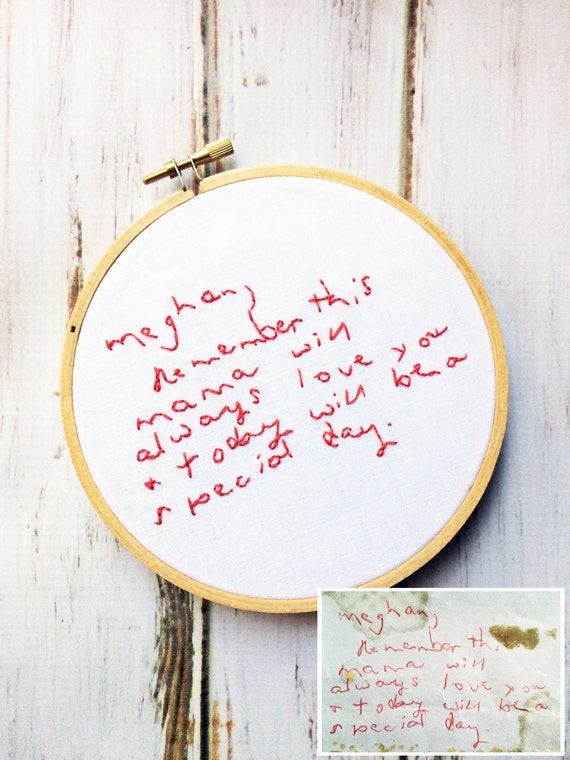 meghan,
Remember this
mama will
always love you
+ today will be a
special day.
meghan,
Remember this
mama will
always love you
+ today will be a
special day.